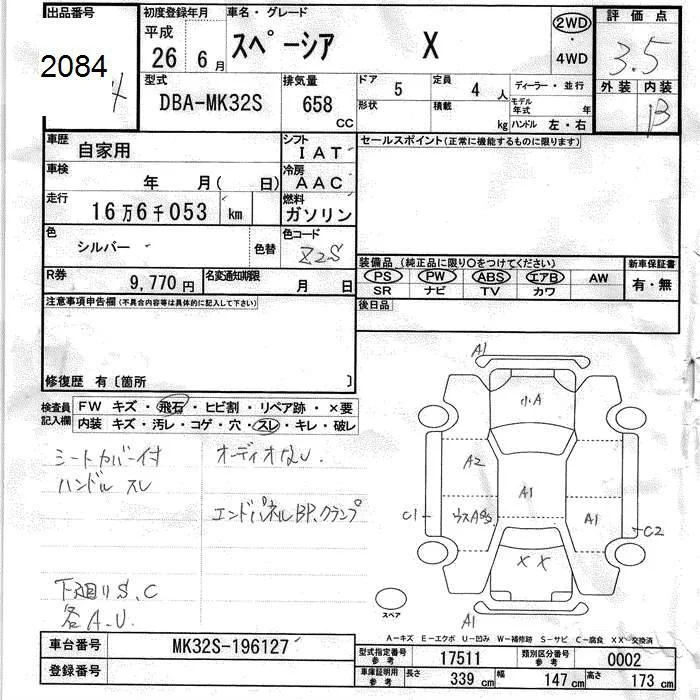 出品番号 初度登録年月 車名・グレード 2WD 評価点
平成
26 6月 スペーシア X 4WD 3.5
2084
4
型式 排気量 ドア 定員 ディーラー・並行 外装 内装
DBA-MK32S 658 CC 5 4人 形状 積載 kg モデル年式 年 ハンドル 左・右 B
車歴 自家用 シフト IAT セールスポイント(正常に機能するものに限ります)
車検 年 月( 日) 冷房 AAC
走行 16万6千053 km 燃料 ガソリン
色 シルバー 色替 色コード Z2S 装備品(純正品に限り○をつけてください) 新車保証書
PS PW ABS エアB AW 有・無
R券 9,770円 名変通知期限 月 日 SR ナビ TV カワ
注意事項申告欄(不具合内容等は具体的に記入して下さい) 後日品
修復歴 有〔箇所 〕
検査員記入欄 FW キズ・飛石・ヒビ割・リペア跡・×要
内装 キズ・汚レ・コゲ・穴・スレ・キレ・破レ
シートカバー付 オーディオなし
ハンドル スレ
エンドパネルBP、クランプ
下廻りS、C
各A・U
A1
小A
A2
A1
C1 ウスA A1 C2
XX
スペア A1
A-キズ E-エクボ U-凹み W-補修跡 S-サビ C-腐食 XX-交換済
車台番号 MK32S-196127 型式指定番号 参考 17511 類別区分番号 参考 0002
登録番号 車庫証明用 参考 長さ 339cm 幅 147cm 高さ 173cm